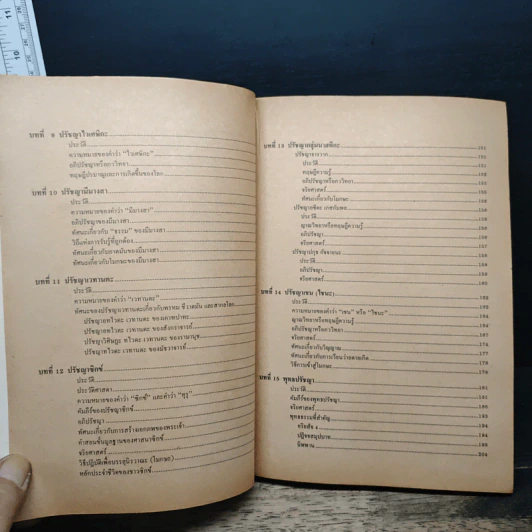 บทที่ 9 ปรัชญาไวเศษิกะ
ประวัติ
ความหมายของคำว่า "ไวเศษิกะ"
อภิปรัชญาหรือภววิทยา
ทฤษฎีปรมาณูและการเกิดขึ้นของโลก
บทที่ 10 ปรัชญามีมางสา
ประวัติ
ความหมายของคำว่า "มีมางสา"
อภิปรัชญาของมีมางสา
ทัศนะเกี่ยวกับ "ธรรม" ของมีมางสา
วิธีแห่งการรับรู้ที่ถูกต้อง
ทัศนะเกี่ยวกับอาตมันของมีมางสา
ทัศนะเกี่ยวกับโมกษะของมีมางสา
บทที่ 11 ปรัชญาเวทานตะ
ประวัติ
ความหมายของคำว่า "เวทานตะ"
ทัศนะของปรัชญาเวทานตะเกี่ยวกับพรหม ชีวาตมัน และสากลโลก
ปรัชญาอทไวตะ เวทานตะ ของเคาฑปาทะ
ปรัชญาอทไวตะ เวทานตะ ของสังกราจารย์
ปรัชญาวิศิษฏะ อทไวตะ เวทานตะ ของรามานุช
ปรัชญาทไวตะ เวทานตะ ของมัธวาจารย์
บทที่ 12 ปรัชญาซิกข์
ประวัติ
ประวัติศาสดา
ความหมายของคำว่า "ซิกข์" และคำว่า "คุรุ"
คัมภีร์ของปรัชญาซิกข์
อภิปรัชญา
ทัศนะเกี่ยวกับการสร้างเอกภพของพระเจ้า
คำสอนขั้นมูลฐานของศาสนาซิกข์
จริยศาสตร์
วิธีปฏิบัติเพื่อบรรลุนิรวาณะ (โมกษะ)
หลักประจำชีวิตของชาวซิกข์
บทที่ 13 ปรัชญากลุ่มนาสติกะ
ปรัชญาจารวาก
ประวัติ
ทฤษฎีความรู้
อภิปรัชญาหรือภววิทยา
จริยศาสตร์
ทัศนะเกี่ยวกับโมกษะ
ปรัชญาอชิตะ เกสกัมพล
ประวัติ
ญาณวิทยาหรือทฤษฎีความรู้
อภิปรัชญา
จริยศาสตร์
ปรัชญาปกุธ กัจจายนะ
ประวัติ
อภิปรัชญา
จริยศาสตร์
บทที่ 14 ปรัชญาเชน (ไชนะ)
ประวัติ
ความหมายของคำว่า "เชน" หรือ "ไชนะ"
ญาณวิทยาหรือทฤษฎีความรู้
อภิปรัชญาหรือภววิทยา
จริยศาสตร์
ทัศนะเกี่ยวกับวิญญาณ
ทัศนะเกี่ยวกับการเวียนว่ายตายเกิด
วิธีการเข้าสู่โมกษะ
บทที่ 15 พุทธปรัชญา
ประวัติ
คัมภีร์ของพุทธปรัชญา
จริยศาสตร์
พุทธธรรมที่สำคัญ
อริยสัจ 4
ปฏิจจสมุปบาท
นิพพาน